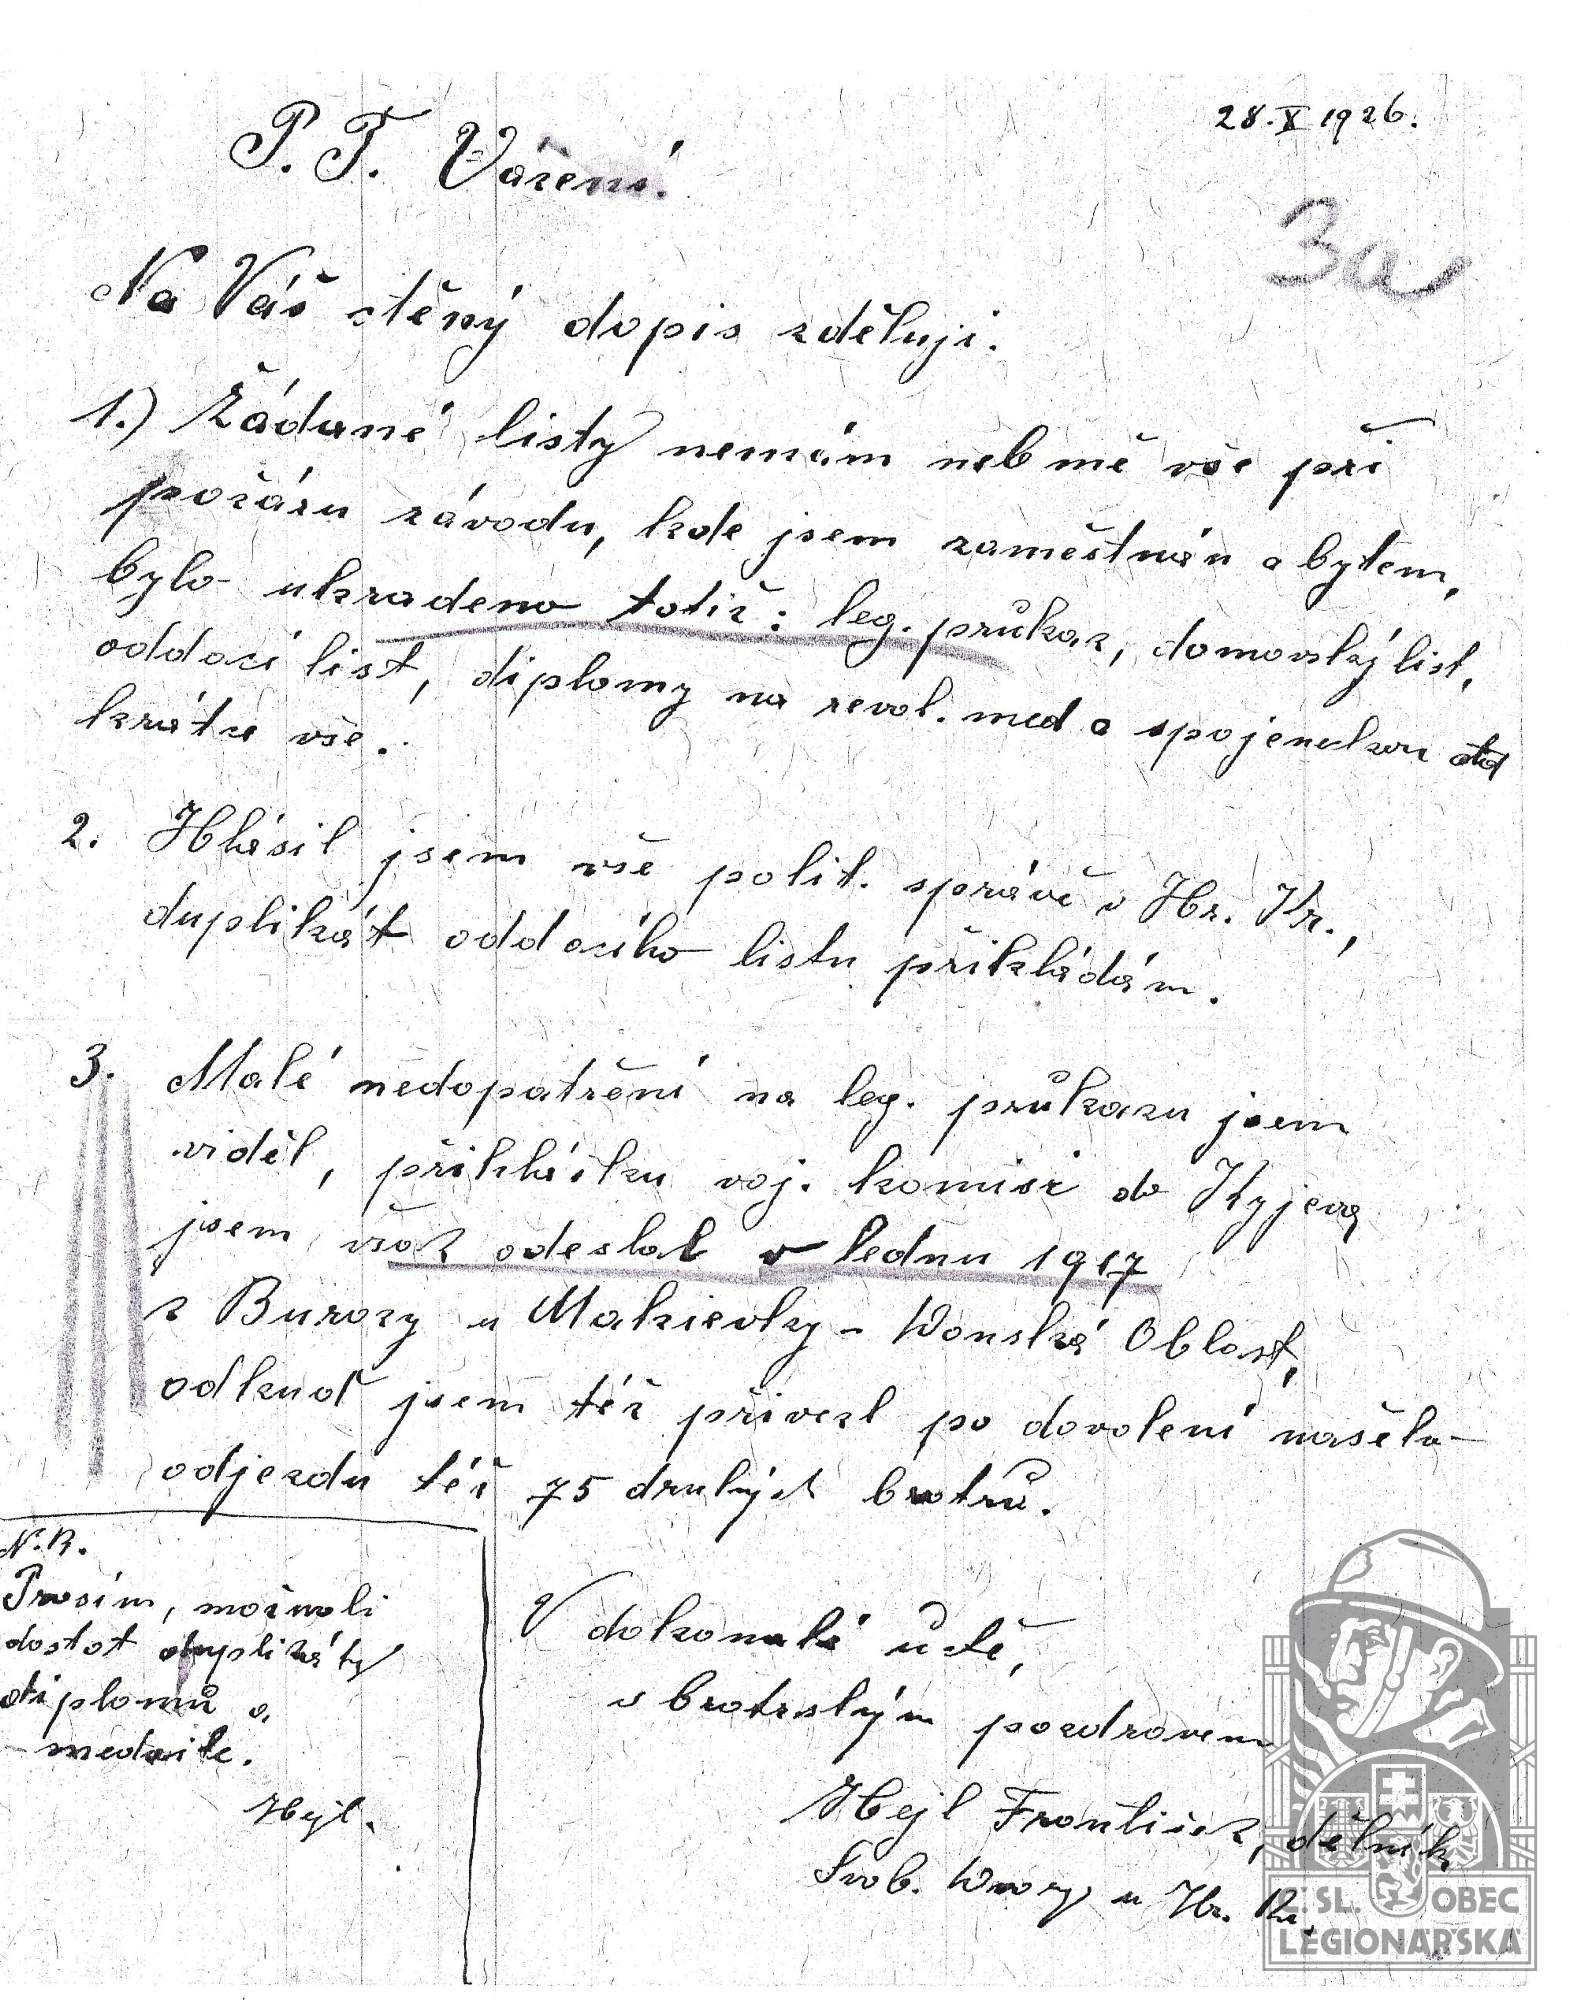 28. X 1926.
P. T. Vážení.
3a
Na Váš ctěný dopis zděluji.
1.) Žádané listy nemám neb mě vše při
požáru závodu, kde jsem zaměstnán a bytem,
bylo ukradeno totiž: leg. průkaz, domovský list,
oddací list, diplomy na revol. med a spojeneckou atd
krátce vše.
2. Hlásil jsem vše polit. správě v Hr. Kr.,
duplikát oddacího listu přikládám.
3. Malé nedopatření na leg. průkazu jsem
viděl, přihlášku voj. komisi do Kyjeva
jsem však odeslal v lednu 1917
z Burozy u Makievky - Donská Oblast,
odkud jsem též přivezl po dovolení našeho
odjezdu též 75 druhých bratrů.
N.B.
Prosím, možnoli
dostat duplikáty
diplomů a
medaile.
Hejl.
V dokonalé úctě,
s bratrským pozdravem
Hejl František, dělník
Svob. Dvory u Hr. Kr.
Č. SL. OBEC
LEGIONÁŘSKÁ